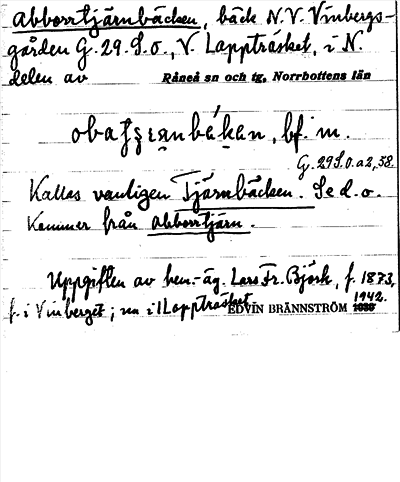 Abborrtjärnbäcken, bäck N.V. Vinbergs-
gården G. 29. S.o., V. Lappträsket, i N.
delen av Råneå sn och tg, Norrbottens län
bf. m.
G. 29 S.o. a 2, 38.
Kallas vanligen Tjärnbäcken. Se d. o.
Kommer från Abborrtjärn.
Uppgiften av hem.-äg. Lars Fr. Björk, f. 1873,
f. i Vinberget; nu i Lappträsket. 1942.
EDVIN BRÄNNSTRÖM 1936